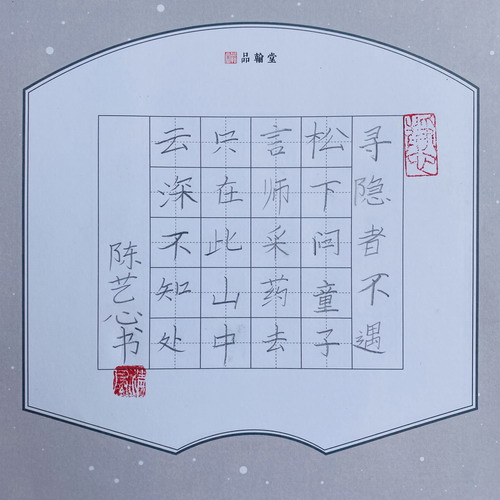 品翰堂
寻隐者不遇
松下问童子
言师采药去
只在此山中
云深不知处
陈艺心书